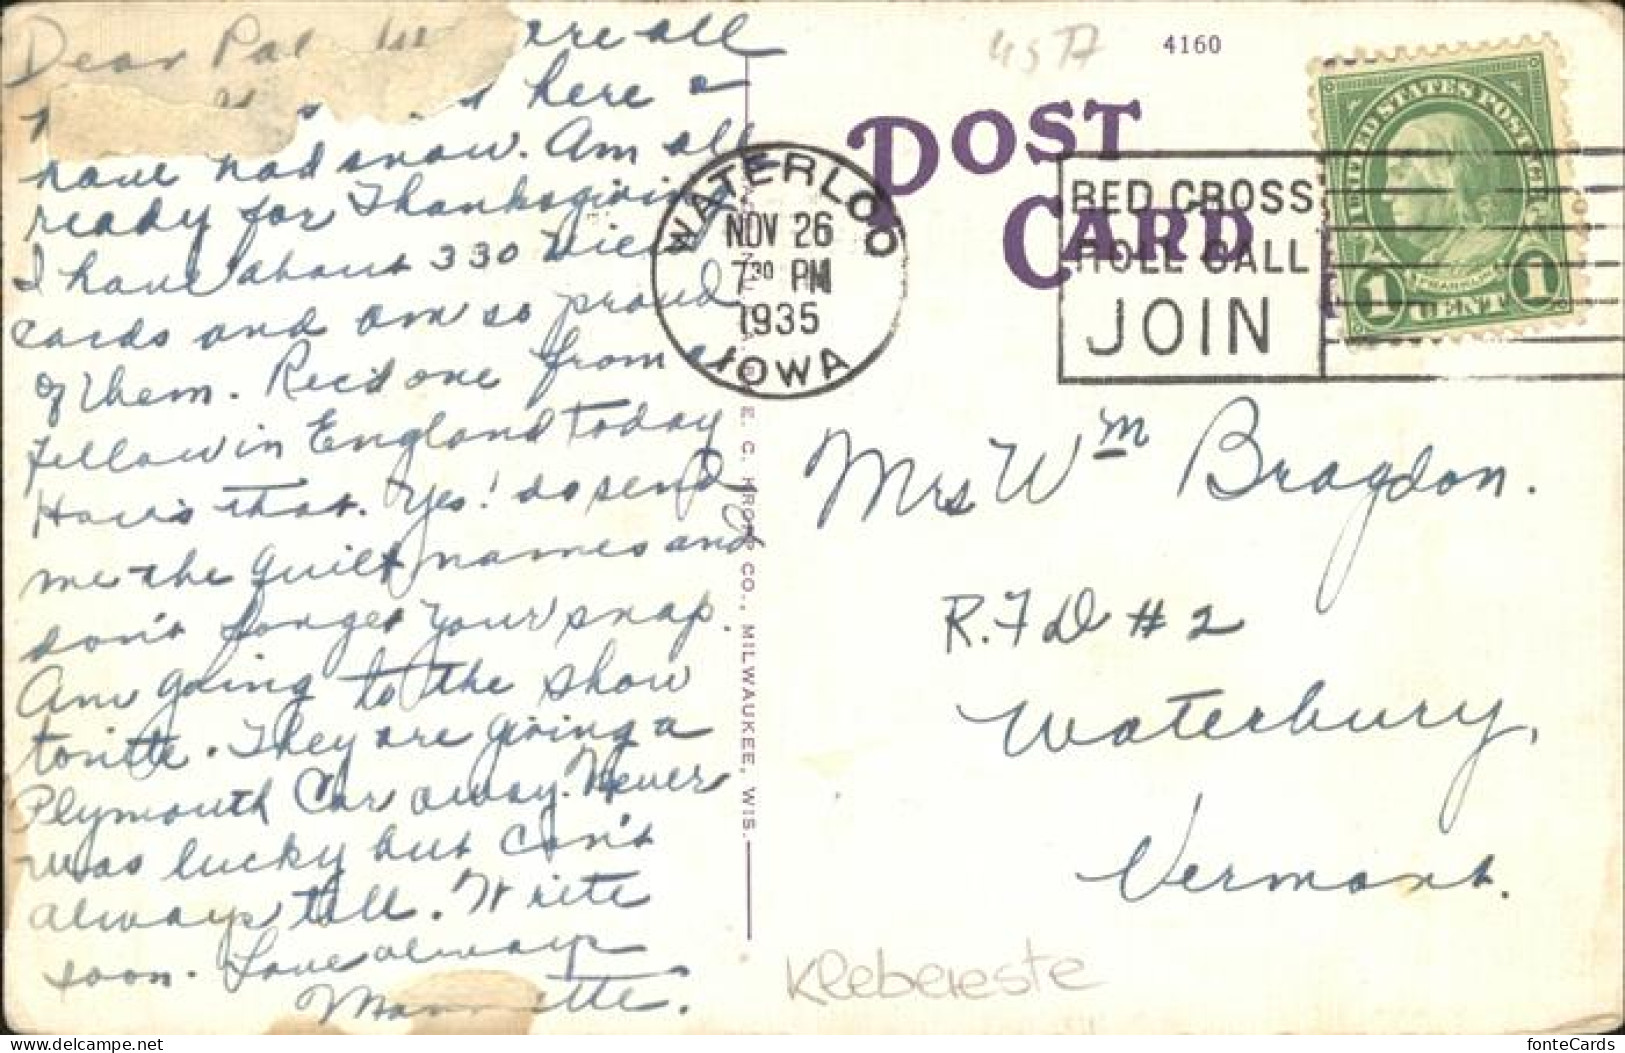 Dear Pal are all
here &
have had snow. Am all
ready for Thanksgiving
I have about 330 View
cards and am so proud
of them. Rec'd one from a
fellow in England today
How's that. Yes! do send
me the quilt names and
don't forget your snap.
Am going to the show
tonite. They are giving a
Plymouth Car away. Never
was lucky but can't
always tell. Write
soon. Love always
USA
4160
POST
CARD
WATERLOO
NOV 26
7 30 PM
1935
IOWA
RED CROSS
ROLL CALL
JOIN
UNITED STATES POSTAGE
FRANKLIN
1 CENT 1
E. C. KROPP CO., MILWAUKEE, WIS.
Mrs Wm Bragdon.
R.F.D # 2
Waterbury,
Vermont.
Klebereste
fonteCards